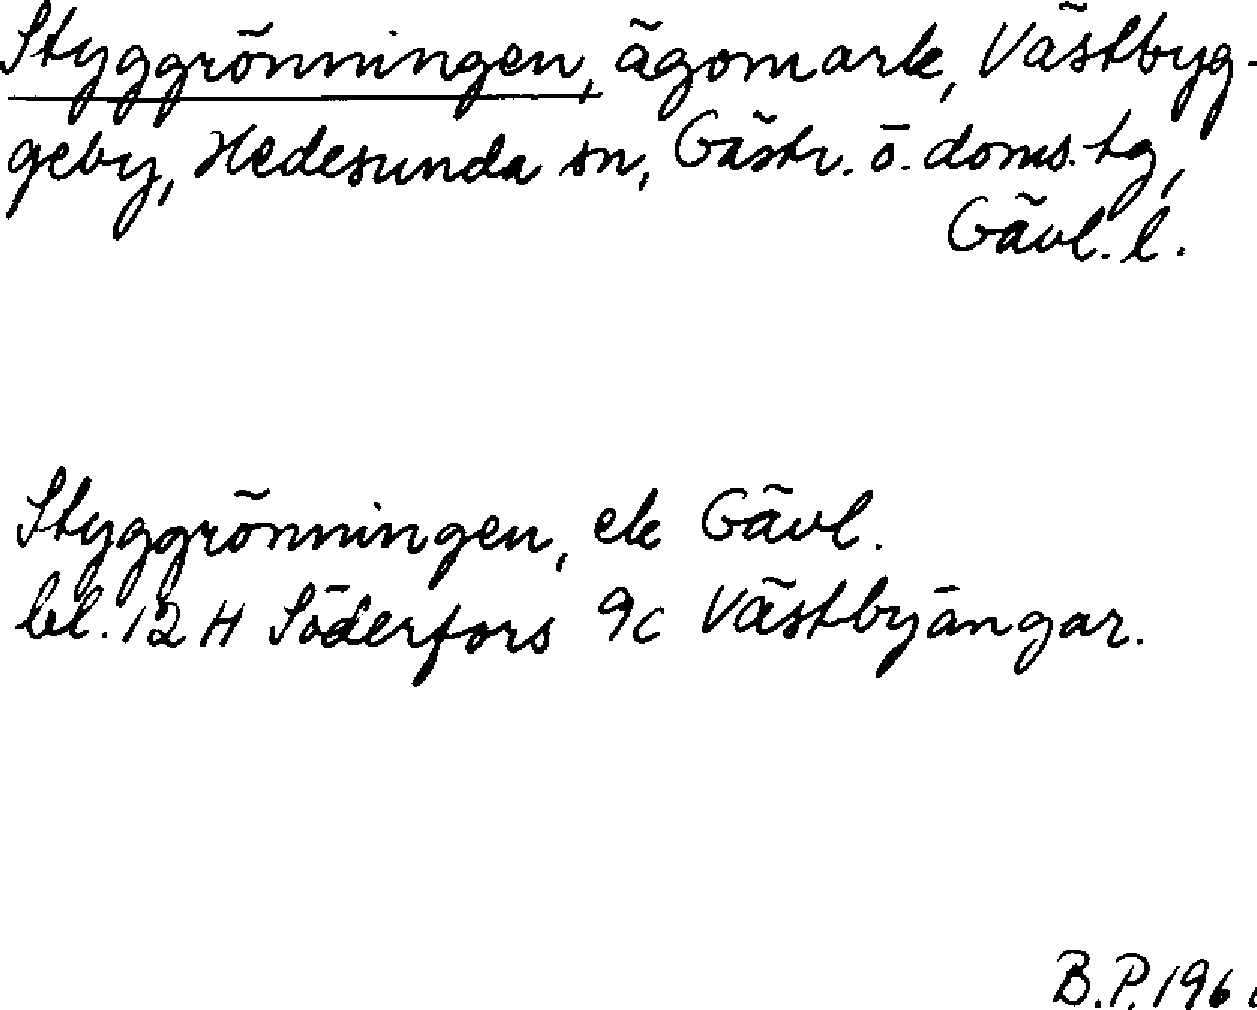 Styggrönningen, ägomark, Västbyg-
geby, Hedesunda sn, Gästr. ö. doms. tg,
Gävl. l.
Styggrönningen, ek Gävl.
bl. 12 H Söderfors 9c Västbyängar.
B.P. 196